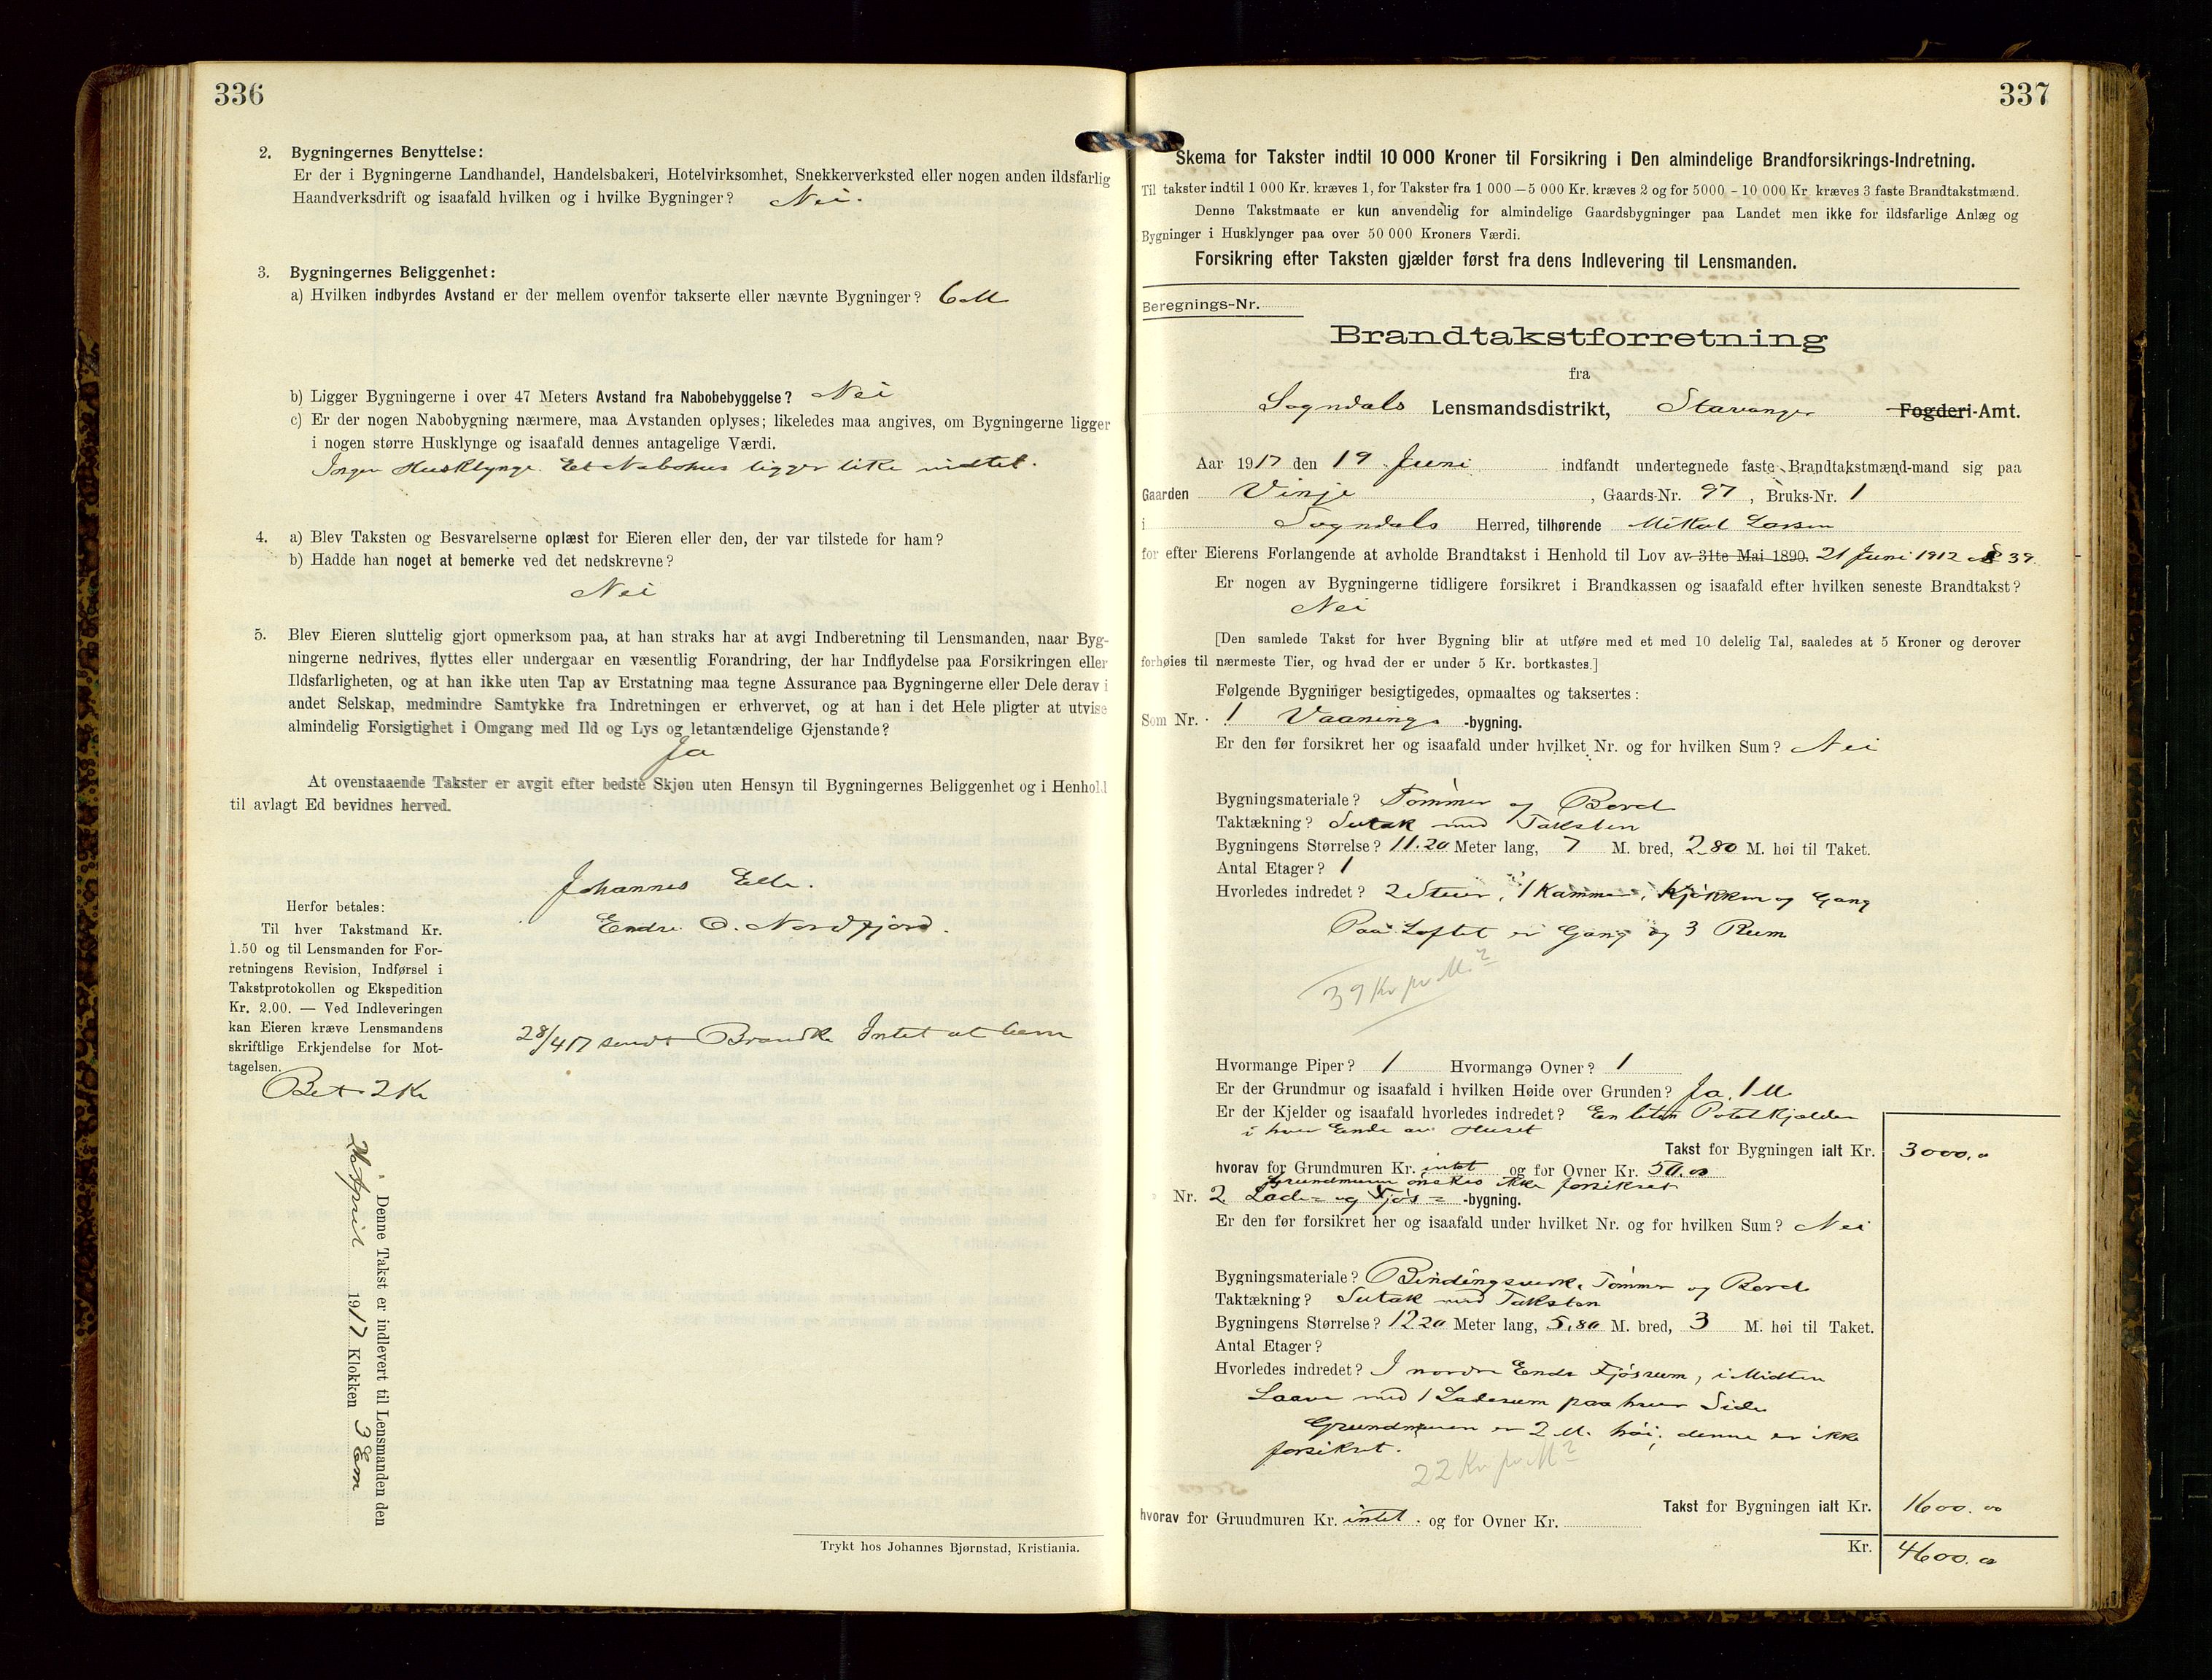 336
2. Bygningernes Benyttelse:
Er der i Bygningerne Landhandel, Handelsbakeri, Hotelvirksomhet, Snekkerverksted eller nogen anden ildsfarlig
Haandverksdrift og isaafald hvilken og i hvilke Bygninger? Nei.
3. Bygningernes Beliggenhet:
a) Hvilken indbyrdes Avstand er der mellem ovenfor takserte eller nævnte Bygninger? 6 M
b) Ligger Bygningerne i over 47 Meters Avstand fra Nabobebyggelse? Nei
c) Er der nogen Nabobygning nærmere, maa Avstanden oplyses; likeledes maa angives, om Bygningerne ligger
i nogen større Husklynge og isaafald dennes antagelige Værdi.
Ingen Husklynge. Et Nabohus ligger like indtil.
4. a) Blev Taksten og Besvarelserne oplæst for Eieren eller den, der var tilstede for ham?
b) Hadde han noget at bemerke ved det nedskrevne?
Nei
5. Blev Eieren sluttelig gjort opmerksom paa, at han straks har at avgi Indberetning til Lensmanden, naar Byg-
ningerne nedrives, flyttes eller undergaar en væsentlig Forandring, der har Indflydelse paa Forsikringen eller
Ildsfarligheten, og at han ikke uten Tap av Erstatning maa tegne Assurance paa Bygningerne eller Dele derav i
andet Selskap, medmindre Samtykke fra Indretningen er erhvervet, og at han i det Hele pligter at utvise
almindelig Forsigtighet i Omgang med Ild og Lys og letantændelige Gjenstande?
Ja
At ovenstaaende Takster er avgit efter bedste Skjøn uten Hensyn til Bygningernes Beliggenhet og i Henhold
til avlagt Ed bevidnes herved.
Johannes Elle.
Endre O. Nordfjord.
Herfor betales:
Til hver Takstmand Kr.
1.50 og til Lensmanden for For-
retningens Revision, Indførsel i
Takstprotokollen og Ekspedition
Kr. 2.00. — Ved Indleveringen
kan Eieren kræve Lensmandens
skriftlige Erkjendelse for Mot-
tagelsen.
Bet 2 Kr
28/4 17 sendt Brandk. Intet at bem
Denne Takst er indlevert til Lensmanden den
April 1917 Klokken 3 Em
Trykt hos Johannes Bjørnstad, Kristiania.
337
Skema for Takster indtil 10 000 Kroner til Forsikring i Den almindelige Brandforsikrings-Indretning.
Til takster indtil 1 000 Kr. kræves 1, for Takster fra 1 000 — 5 000 Kr. kræves 2 og for 5000 - 10 000 Kr. kræves 3 faste Brandtakstmænd.
Denne Takstmaate er kun anvendelig for almindelige Gaardsbygninger paa Landet men ikke for ildsfarlige Anlæg og
Bygninger i Husklynger paa over 50 000 Kroners Værdi.
Forsikring efter Taksten gjælder først fra dens Indlevering til Lensmanden.
Beregnings-Nr.
Brandtakstforretning
fra
Sogndals Lensmandsdistrikt, Stavanger Fogderi-Amt.
Aar 1917 den 19 Juni indfandt undertegnede faste Brandtakstmænd-mand sig paa
Gaarden Vinje, Gaards-Nr. 97, Bruks-Nr. 1
i Sogndals Herred, tilhørende Mikal Larsen
for efter Eierens Forlangende at avholde Brandtakst i Henhold til Lov av 31te Mai 1890. 21 Juni 1912 § 39.
Er nogen av Bygningerne tidligere forsikret i Brandkassen og isaafald efter hvilken seneste Brandtakst?
Nei
[Den samlede Takst for hver Bygning blir at utføre med et med 10 delelig Tal, saaledes at 5 Kroner og derover
forhøies til nærmeste Tier, og hvad der er under 5 Kr. bortkastes.]
Følgende Bygninger besigtigedes, opmaaltes og taksertes:
Som Nr. 1 Vaanings -bygning.
Er den før forsikret her og isaafald under hvilket Nr. og for hvilken Sum? Nei
Bygningsmateriale? Tømmer og Bord
Taktækning? Sutak med Taksten
Bygningens Størrelse? 11.20 Meter lang, 7 M. bred, 2.80 M. høi til Taket.
Antal Etager? 1
Hvorledes indredet? 2 Stuer, 1 Kammer, Kjøkken og Gang
Paa Loftet er Gang og 3 Rum
39 Kr pr M.²
Hvormange Piper? 1 Hvormange Ovner? 1
Er der Grundmur og isaafald i hvilken Høide over Grunden? Ja, 1 M
Er der Kjelder og isaafald hvorledes indredet? En liten Potetkjelder
i hver Ende av Huset
Takst for Bygningen ialt Kr. 3000.00
hvorav for Grundmuren Kr. intet og for Ovner Kr. 50.00
Grundmuren ønskes ikke forsikret
Nr. 2 Lade- og Fjøs- -bygning.
Er den før forsikret her og isaafald under hvilket Nr. og for hvilken Sum? Nei
Bygningsmateriale? Bindingsverk, Tømmer og Bord
Taktækning? Sutak med Taksten
Bygningens Størrelse? 12.20 Meter lang, 5.80 M. bred, 3 M. høi til Taket.
Antal Etager?
Hvorledes indredet? I nordre Ende Fjøsrum, i Midten
Laave med 1 Laderum paa hver Side
Grundmuren er 2 M. høi, denne er ikke
forsikret.
22 Kr pr M²
Takst for Bygningen ialt Kr. 1600.00
hvorav for Grundmuren Kr. intet. og for Ovner Kr.
Kr. 4600.00